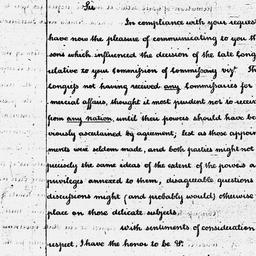 Sir
In compliance with your request
have now the pleasure of communicating to you th
sons which influenced the decision of the late Cong
relative to your Commission of Commissary viz. Th
Congress not having received any Commissaries for
mercial affairs, thought it most prudent not to receive
from any nation, until their powers should have be
viously ascertained by agreement; lest as those appoin
ments were seldom made, and both parties might not
precisely the same ideas of the extent of the powers a
privileges annexed to them, disagreeable questions
discussions might (and probably would) otherwise
place on those delicate subjects.
With sentiments of consideration
respect, I have the honor to be &c.